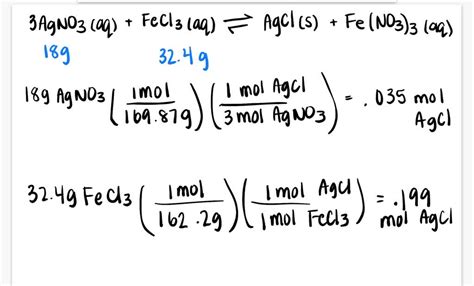 3AgNO3 (aq) + FeCl3 (aq) ⇌ AgCl(s) + Fe(NO3)3 (aq)
18g 32.4g
18g AgNO3 (1mol / 169.87g) (1 mol AgCl / 3 mol AgNO3) = .035 mol AgCl
32.4g FeCl3 (1mol / 162.2g) (1 mol AgCl / 1mol FeCl3) = .199 mol AgCl